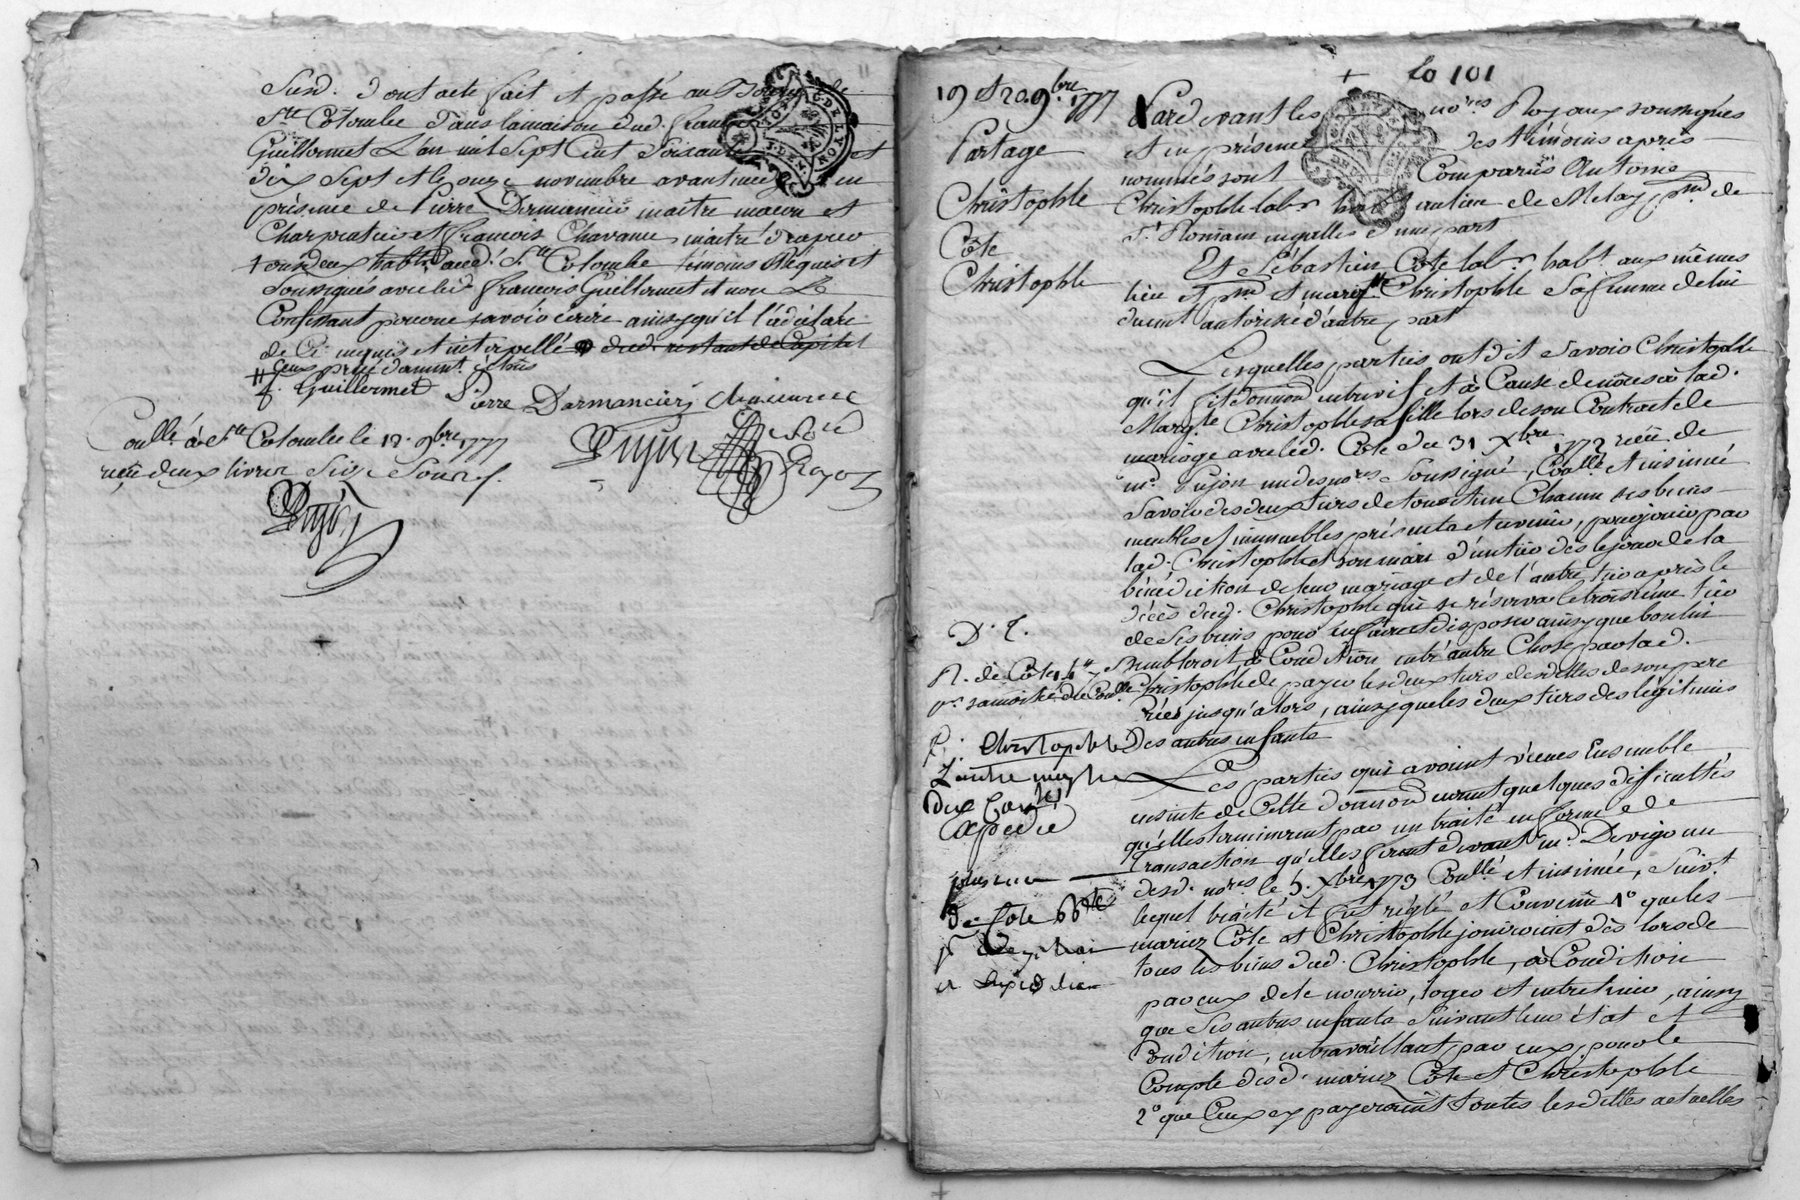 Susd. dont acte fait et passé au Bourg de
Ste Colombe dans la maison dud. françois
Guillermet L'an mil sept cent soixante et
dix sept et le onze novembre avant midy en
présence de Pierre Darmancier maitre maçon et
Charpentier et françois Chavanne maitre drapier
tous deux habts aud. Ste Colombe témoins Requis et
soussignés avec led. françois Guillermet et non Le
Confessant pour ne savoir écrire ainsy qu'il l'a déclaré
de ce requis et interpellé dud. restant de Capital
f. Guillermet Pierre Darmancier Chavanne
Pujon no.re Royal
Conllé à Ste Colombe le 12. 9bre 1777
reçu deux livres seize sous
Pujon
fo 101
19 et 20. 9bre 1777
Partage
Christophle
Côte
Christophle
Pardevant les nores Royaux soussignés
et en présence des témoins après
nommés sont Comparûs Antoine
Christophle labr de Melay psse de
St Romain en galles d'une part
Et Sébastien Côte labr habt aux mêmes
lieu et psse et margte Christophle Sa femme de lui
duemt autorisée d'autre part
Lesquelles parties ont dit Savoir Christophle
qu'il fit donnon entrevifs et à Cause de nôces à lad.
Margte Christophle sa fille lors de son Contract de
mariage avec led. Côte du 31 Xbre 1772 reçu
me Pujon un des nores Soussigné, Conllé et insinué
Savoir des deux tiers de tous et un Chacun ses biens
meubles et immeubles présents et avenir, pour jouir par
lad. Christophle et son mari d'un tiers dès le jour de la
bénédiction de leur mariage et de l'autre tiers après le
décès dud. Christophle qui se réserva le troisième tiers
de Ses biens pour en faire et disposer ainsy que bon lui
Sembleroit, à Condition entr'autre Chose par lad.
Christophle de payer les deux tiers des dettes de son pere
créés jusqu'alors, ainsy que les deux tiers des légitimes
des autres enfants
D. C.
R. de Côte
pr sa moitié du Conlle
Christophle
expedié
de Cote
Les parties qui avoient vécues Ensemble
ensuite de Cette donnon eurent quelques difficultés
qu'elles terminerent par un traité en forme de
Transaction qu'elles firent devant me Devigo un
desd. nores le 5. Xbre 1773 Conllé et insinué, suivt
lequel traité il fut réglé et Convenû 1° que les
mariez Côte et Christophle jouiroient dès lors de
tous les biens dud. Christophle, à Condition
par eux de le nourrir, loger et entretenir, ainsy
que Ses autres enfants Suivant leur état et
Condition, en travaillant par eux pour le
Compte desd. mariez Côte et Christophle
2° que Ceux cy payeroient toutes les dettes actuelles